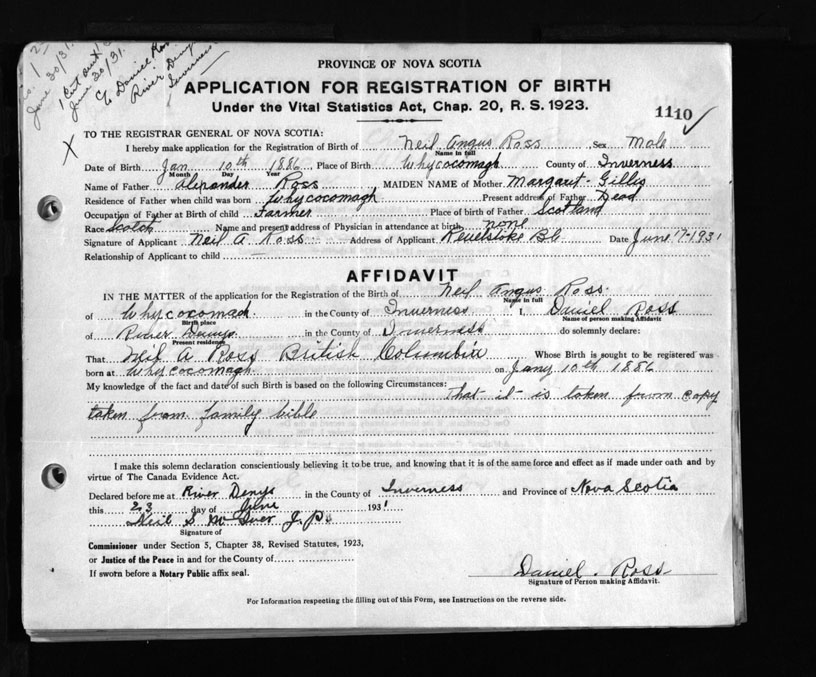 June 30/31.
1 Cert sent
June 30/31.
to Daniel Ross
River Denys
Inverness
PROVINCE OF NOVA SCOTIA
APPLICATION FOR REGISTRATION OF BIRTH
Under the Vital Statistics Act, Chap. 20, R. S. 1923.
1110 ✓
X
TO THE REGISTRAR GENERAL OF NOVA SCOTIA:
I hereby make application for the Registration of Birth of Neil Angus Ross Sex Male
Name in full
Date of Birth Jan 10th 1886 Place of Birth Whycocomagh County of Inverness
Month Day Year
Name of Father Alexander Ross MAIDEN NAME of Mother Margaret Gillis
Residence of Father when child was born Whycocomagh Present address of Father Dead
Occupation of Father at Birth of child Farmer Place of birth of Father Scotland
Race Scotch Name and present address of Physician in attendance at birth none
Signature of Applicant Neil A. Ross Address of Applicant Revelstoke B.C. Date June 17-1931
Relationship of Applicant to child
AFFIDAVIT
IN THE MATTER of the application for the Registration of the Birth of Neil Angus Ross.
Name in full
of Whycocomagh in the County of Inverness I, Daniel Ross
Birth place Name of person making Affidavit
of River Denys in the County of Inverness do solemnly declare:
Present residence
That Neil A Ross British Columbia Whose Birth is sought to be registered was
born at Whycocomagh on Jany 10th 1886
My knowledge of the fact and date of such Birth is based on the following Circumstances: That it is taken from copy
taken from family bible
I make this solemn declaration conscientiously believing it to be true, and knowing that it is of the same force and effect as if made under oath and by
virtue of The Canada Evidence Act.
Declared before me at River Denys in the County of Inverness and Province of Nova Scotia
this 23 day of June 1931
Neil S McIver J.P.
Signature of
Commissioner under Section 5, Chapter 38, Revised Statutes, 1923,
or Justice of the Peace in and for the County of
If sworn before a Notary Public affix seal.
Daniel Ross
Signature of Person making Affidavit.
For Information respecting the filling out of this Form, see Instructions on the reverse side.